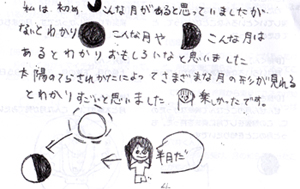 私は初め、こんな月があると思っていましたが
ないとわかり こんな月や こんな月は
あるとわかりおもしろいなと思いました
太陽のてらされかたによってさまざまな月の形が見れる
とわかりすごいと思いました 楽しかったです。
半月だ